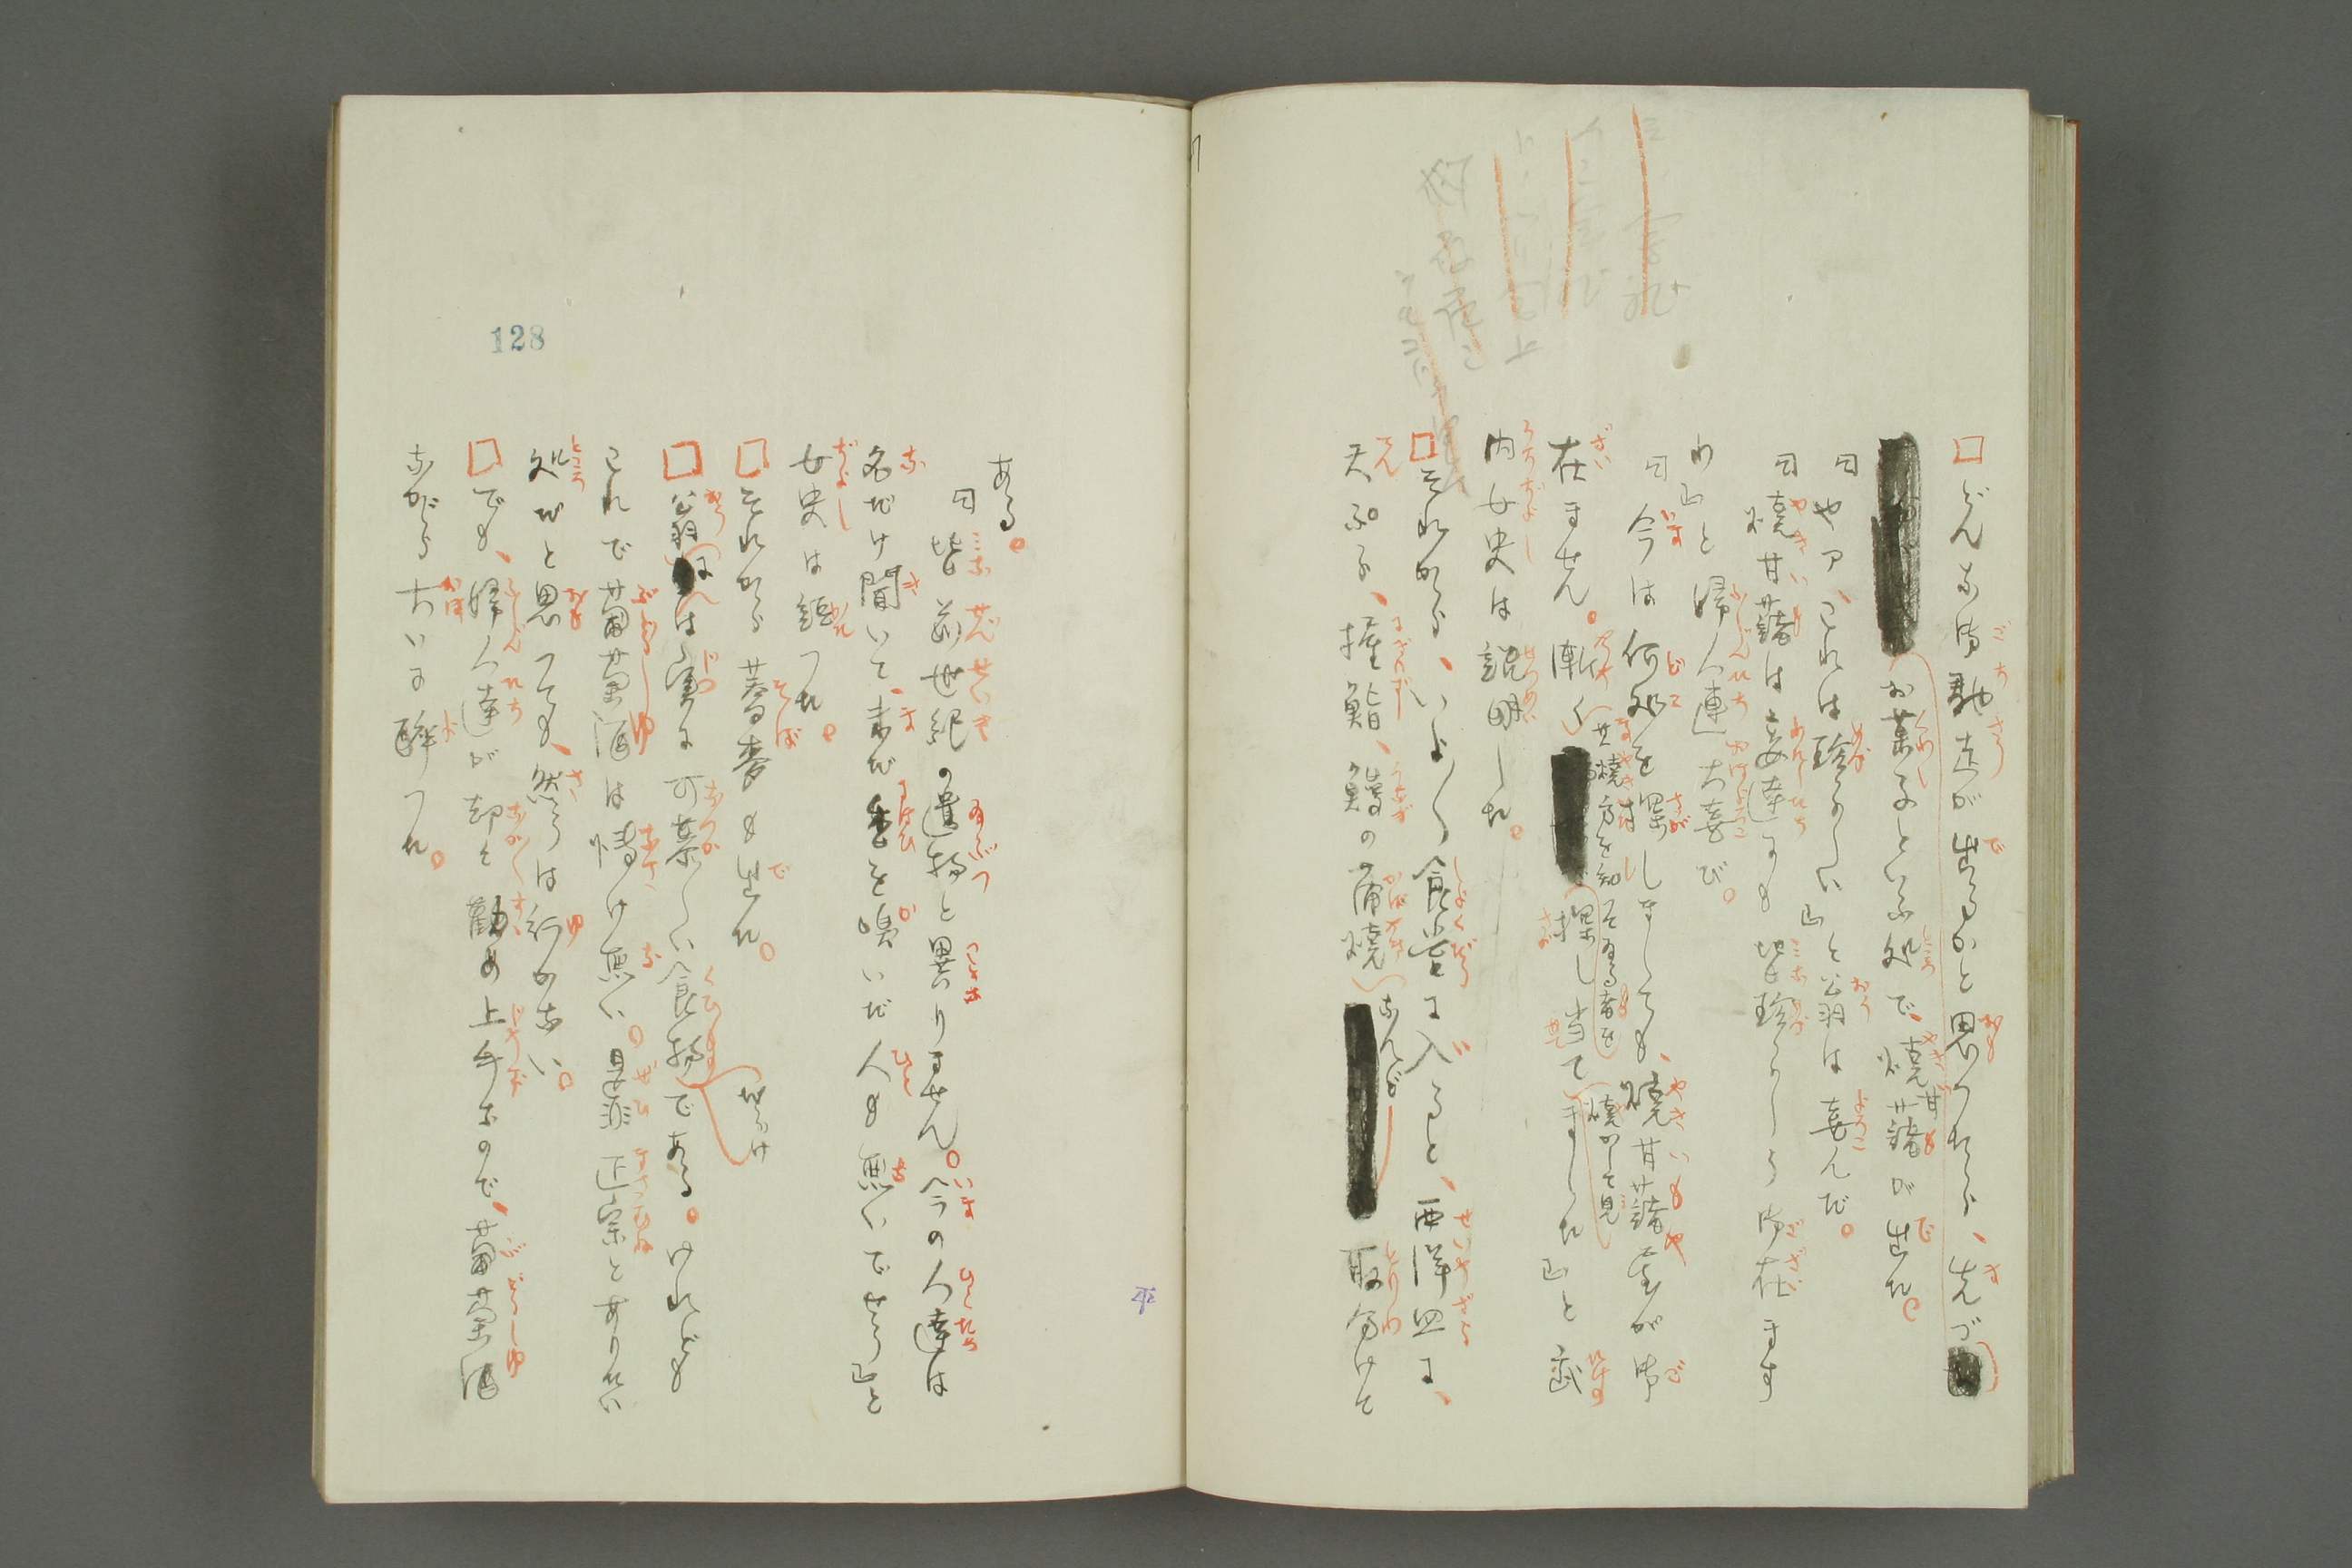 どんな御馳走が出るかと思つたら、先づ
お菓子といふ処で、焼甘藷が出た。
「やア、これは珍らしい」と翁は喜んだ。
「焼甘藷は妾達にも皆珍らしう御在ます
わ」と婦人連大喜び。
「今は何処を探しましても、焼甘藷屋が御
在ません。漸く
其焼方を知つてゐる者を
探し当て
焼かして見
ました」と
内女史は説明した。
それから、いよ〱食堂に入ると、西洋皿に、
天ぷら、握鮨、鰻の蒲焼
なんど
取分けて
ある。
「皆前世紀の遺物と異りません。今の人達は
名だけ聞いて、まだ香を嗅いだ人も無いでせう」と
女史は語つた。
それから蕎麦も出た。
翁は実に可慕しい食物
だらけ
である。けれども
これで葡萄酒は情け無い。是非正宗とありたい
処だと思つても、然うは行かない。
でも、婦人達が却々勧め上手なので、葡萄酒
ながら大いに酔つた。
128